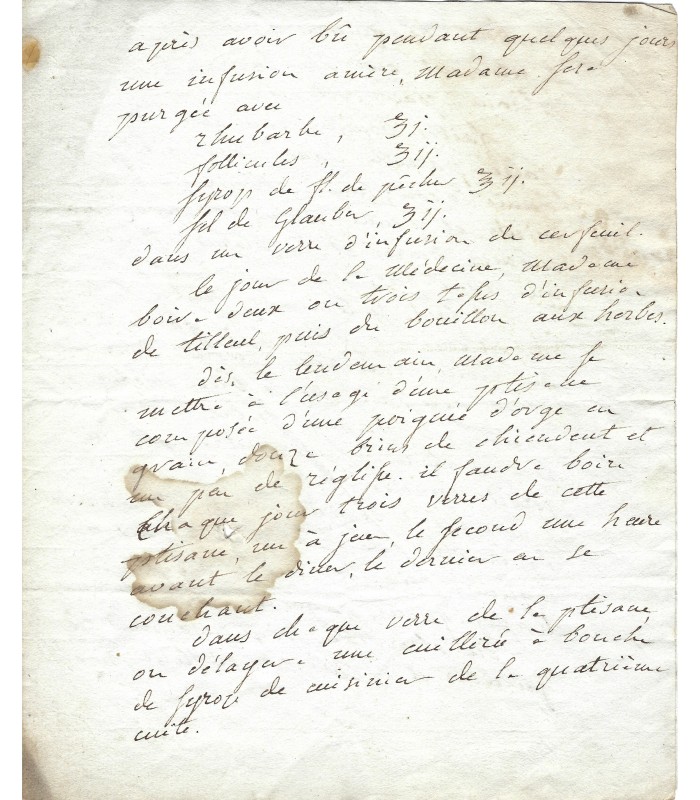 après avoir bû pendant quelques jours
une infusion amère, Madame sera
purgée avec
rhubarbe, ʒj.
follicules, ʒij.
syrop de fl. de pêcher ʒij.
sel de Glauber, ʒij.
dans un verre d'infusion de cerfeuil.
le jour de la Médecine, Madame
boira deux ou trois tasses d'infusion
de tilleul, puis du bouillon aux herbes.
dès le lendemain, Madame se
mettra à l'usage d'une ptisane
composée d'une poignée d'orge en
grain, douze brins de chiendent et
un peu de réglisse. il faudra boire
chaque jour trois verres de cette
ptisane, un à jeun, le second une heure
avant le diner, le dernier en se
couchant.
dans chaque verre de la ptisane,
on délayera une cuillerée à bouche
de syrop de cuisinier de la quatrième
cuite.